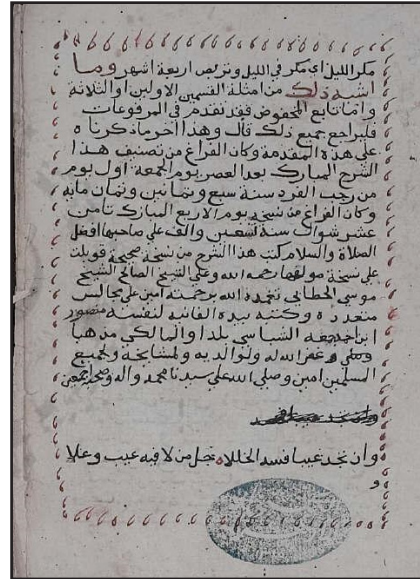 مكر الليل اي مكر في الليل وتربص اربعة اشهر وما
اشبه ذلك من امثلة القسمين الاولين او الثلاثة
واما تابع المخفوض فقد تقدم في المرفوعات
فليراجع جميع ذلك قال وهذا اخر ما ذكرناه
على هذه المقدمة وكان الفراغ من تصنيف هذا
الشرح المبارك بعد العصر يوم الجمعة اول يوم
من رجب الفرد سنة سبع وثمانين وثمان مايه
وكان الفراغ من نسخه يوم الاربع المبارك ثامن
عشر شوال سنة والف على صاحبها افضل
الصلاة والسلام كتب هذا الشرح من نسخة صحيحة قوبلت
على نسخة مولفها رحمه الله وعلى الشيخ الصالح الشيخ
موسى الخطابي تغمده الله برحمته امين على مجالس
متعدده وكتبه بيده الفانيه لنفسه منصور
ابن جمعه بلدا والمالكي مذهبا
غفر الله له ولوالديه ولمشايخه ولجميع
المسلمين امين وصلى الله على سيدنا محمد واله وصحبه اجمعين
وان تجد عيبا فسد الخللا فجل من لا فيه عيب وعلا
و